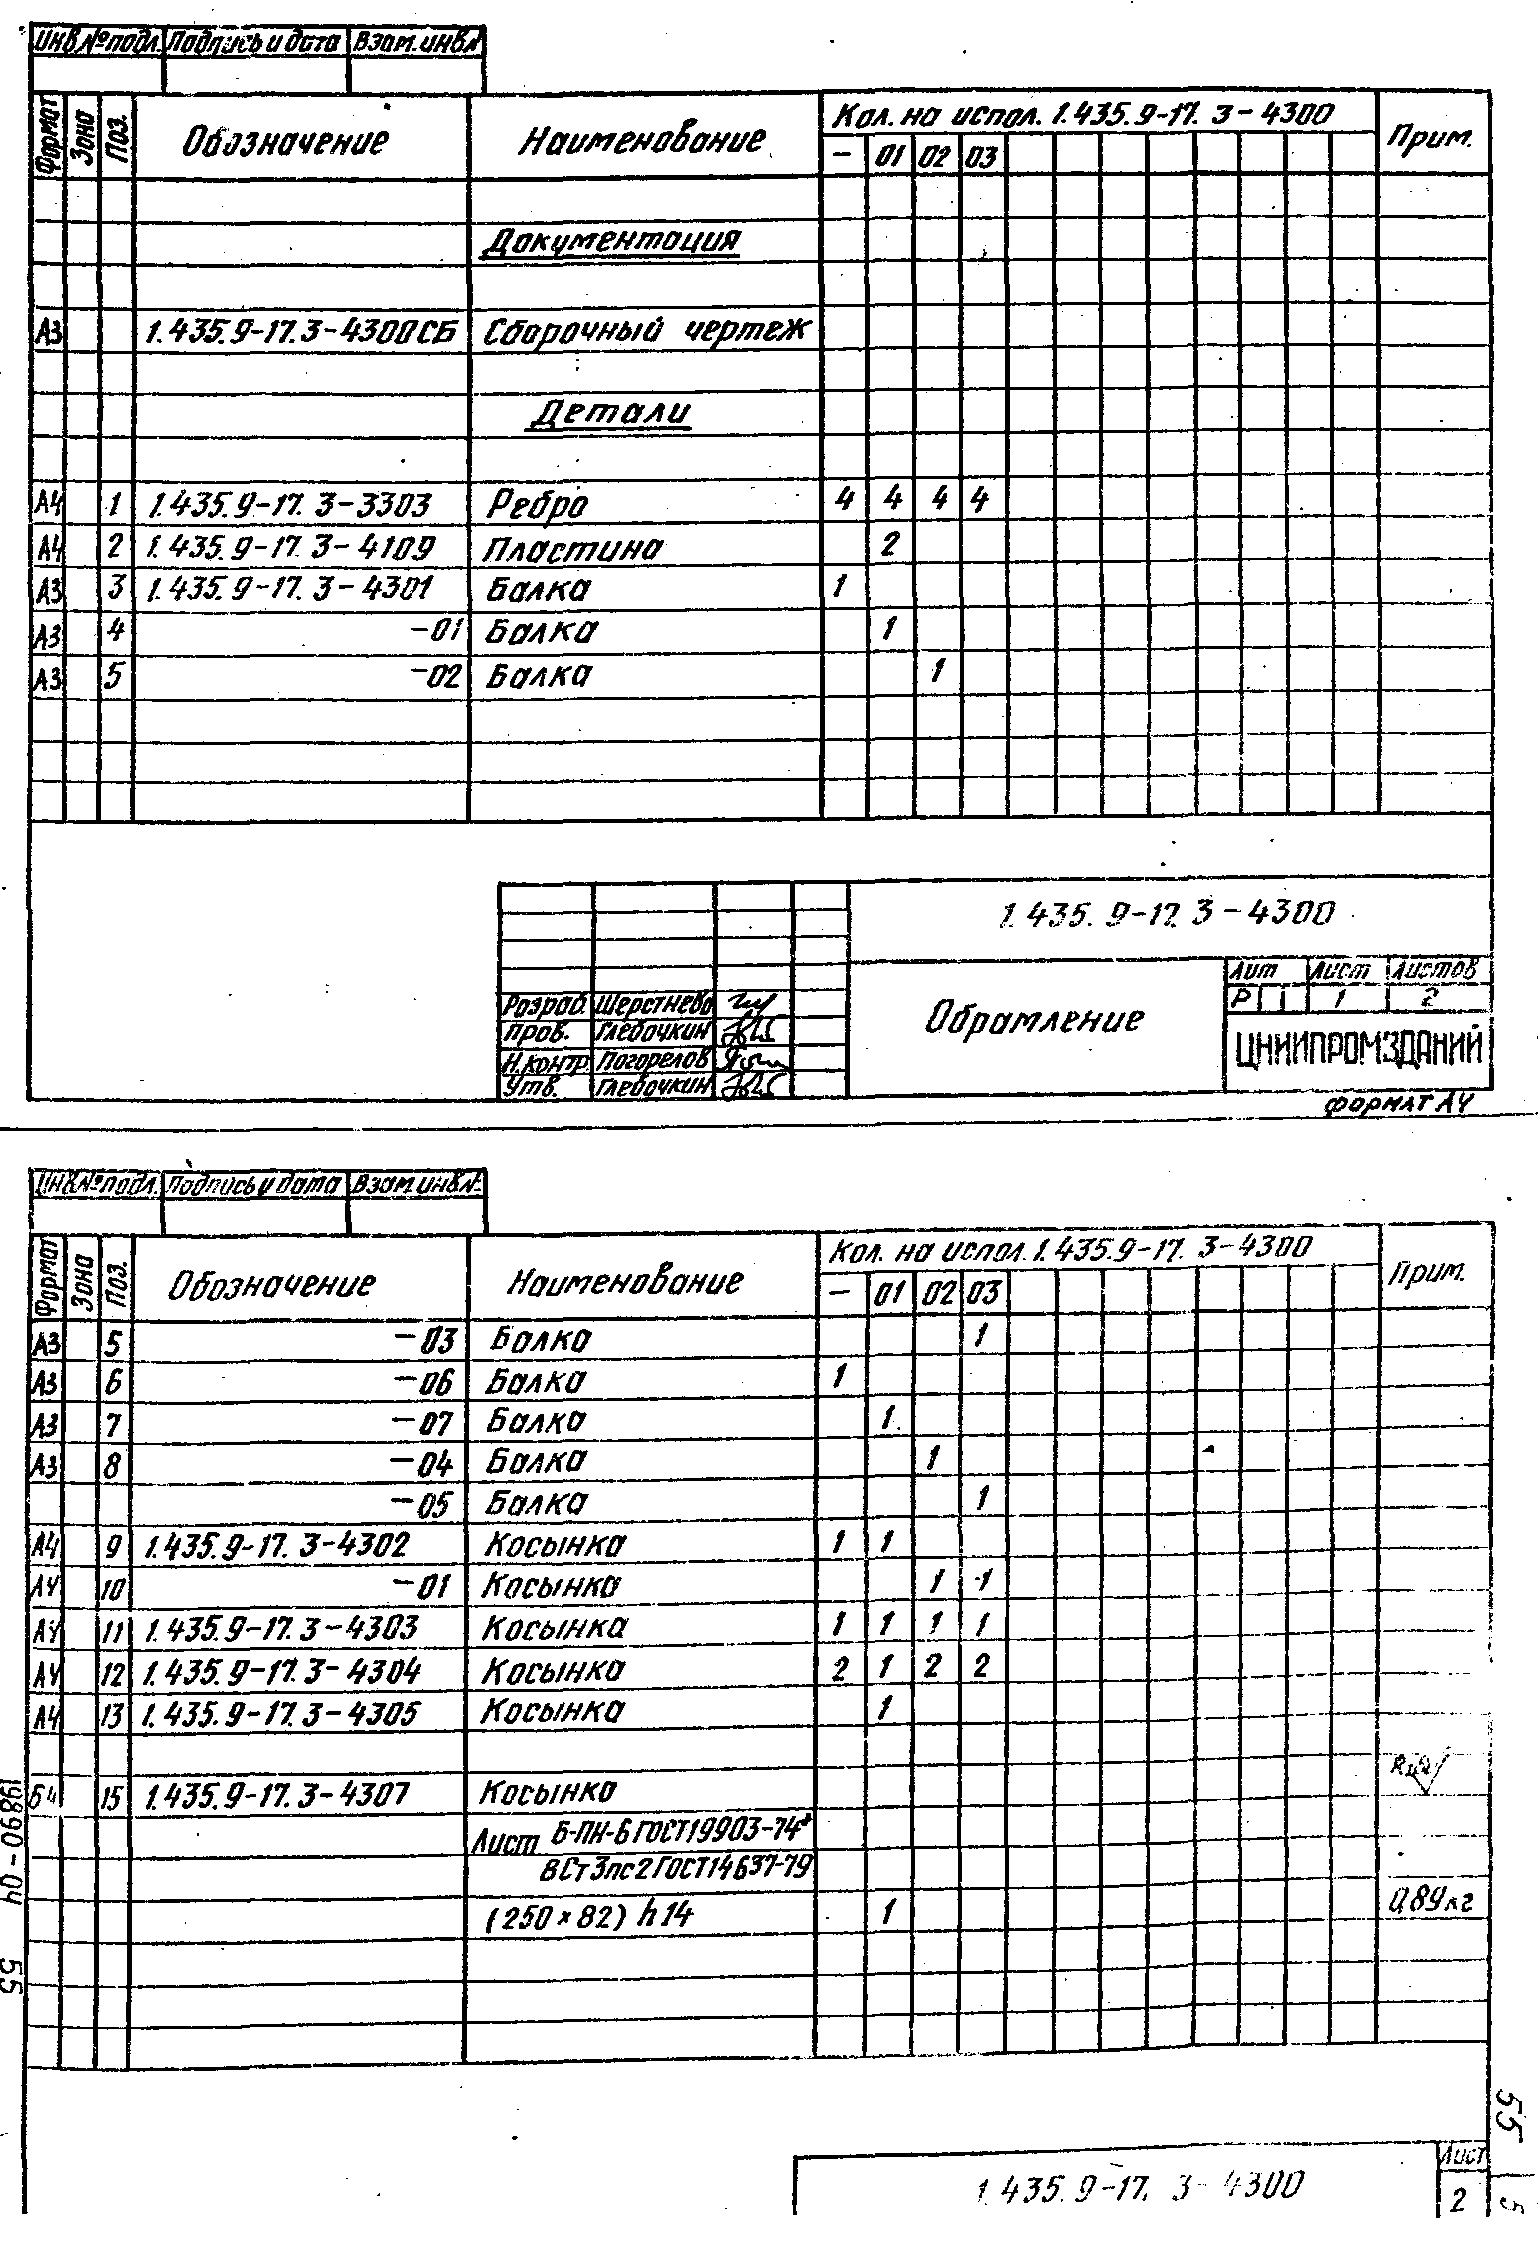 Инв.№подл. Подпись и дата Взам.инв.№
Формат Зона Поз. Обозначение Наименование Кол. на испол. 1.435.9-17. 3-4300 Прим.
— 01 02 03
Документация
А3 1.435.9-17.3-4300СБ Сборочный чертеж
Детали
А4 1 1.435.9-17. 3-3303 Ребро 4 4 4 4
А4 2 1.435.9-17. 3-4109 Пластина 2
А3 3 1.435.9-17. 3-4301 Балка 1
А3 4 -01 Балка 1
А3 5 -02 Балка 1
1.435.9-17. 3-4300
Обрамление
Лит Лист Листов
Р 1 2
ЦНИИПРОМЗДАНИЙ
Разраб. Шерстнева
Пров. Глебочкин
Н.контр Погорелов
Утв. Глебочкин
ФОРМАТ А4
Инв.№подл. Подпись и дата Взам.инв.№
Формат Зона Поз. Обозначение Наименование Кол. на испол. 1.435.9-17. 3-4300 Прим.
— 01 02 03
А3 5 -03 Балка 1
А3 6 -06 Балка 1
А3 7 -07 Балка 1
А3 8 -04 Балка 1
-05 Балка 1
А4 9 1.435.9-17. 3-4302 Косынка 1 1
А4 10 -01 Косынка 1 1
А4 11 1.435.9-17. 3-4303 Косынка 1 1 1 1
А4 12 1.435.9-17. 3-4304 Косынка 2 1 2 2
А4 13 1.435.9-17. 3-4305 Косынка 1
Б4 15 1.435.9-17. 3-4307 Косынка
Лист Б-ПН-6 ГОСТ19903-74*
ВСт3пс2 ГОСТ14637-79
(250×82) h14 1 0,89кг
1.435.9-17. 3-4300
Лист
2
19890-04 55
55